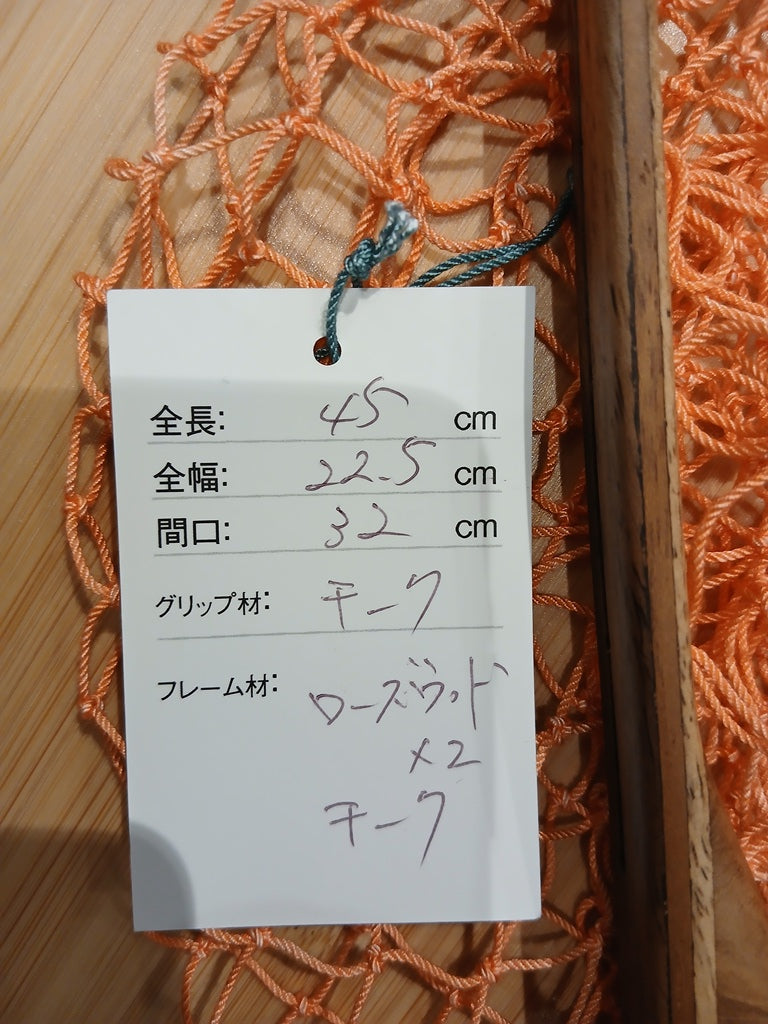 全長: 45 cm
全幅: 22.5 cm
間口: 32 cm
グリップ材: チーク
フレーム材: ローズウッド
×2
チーク